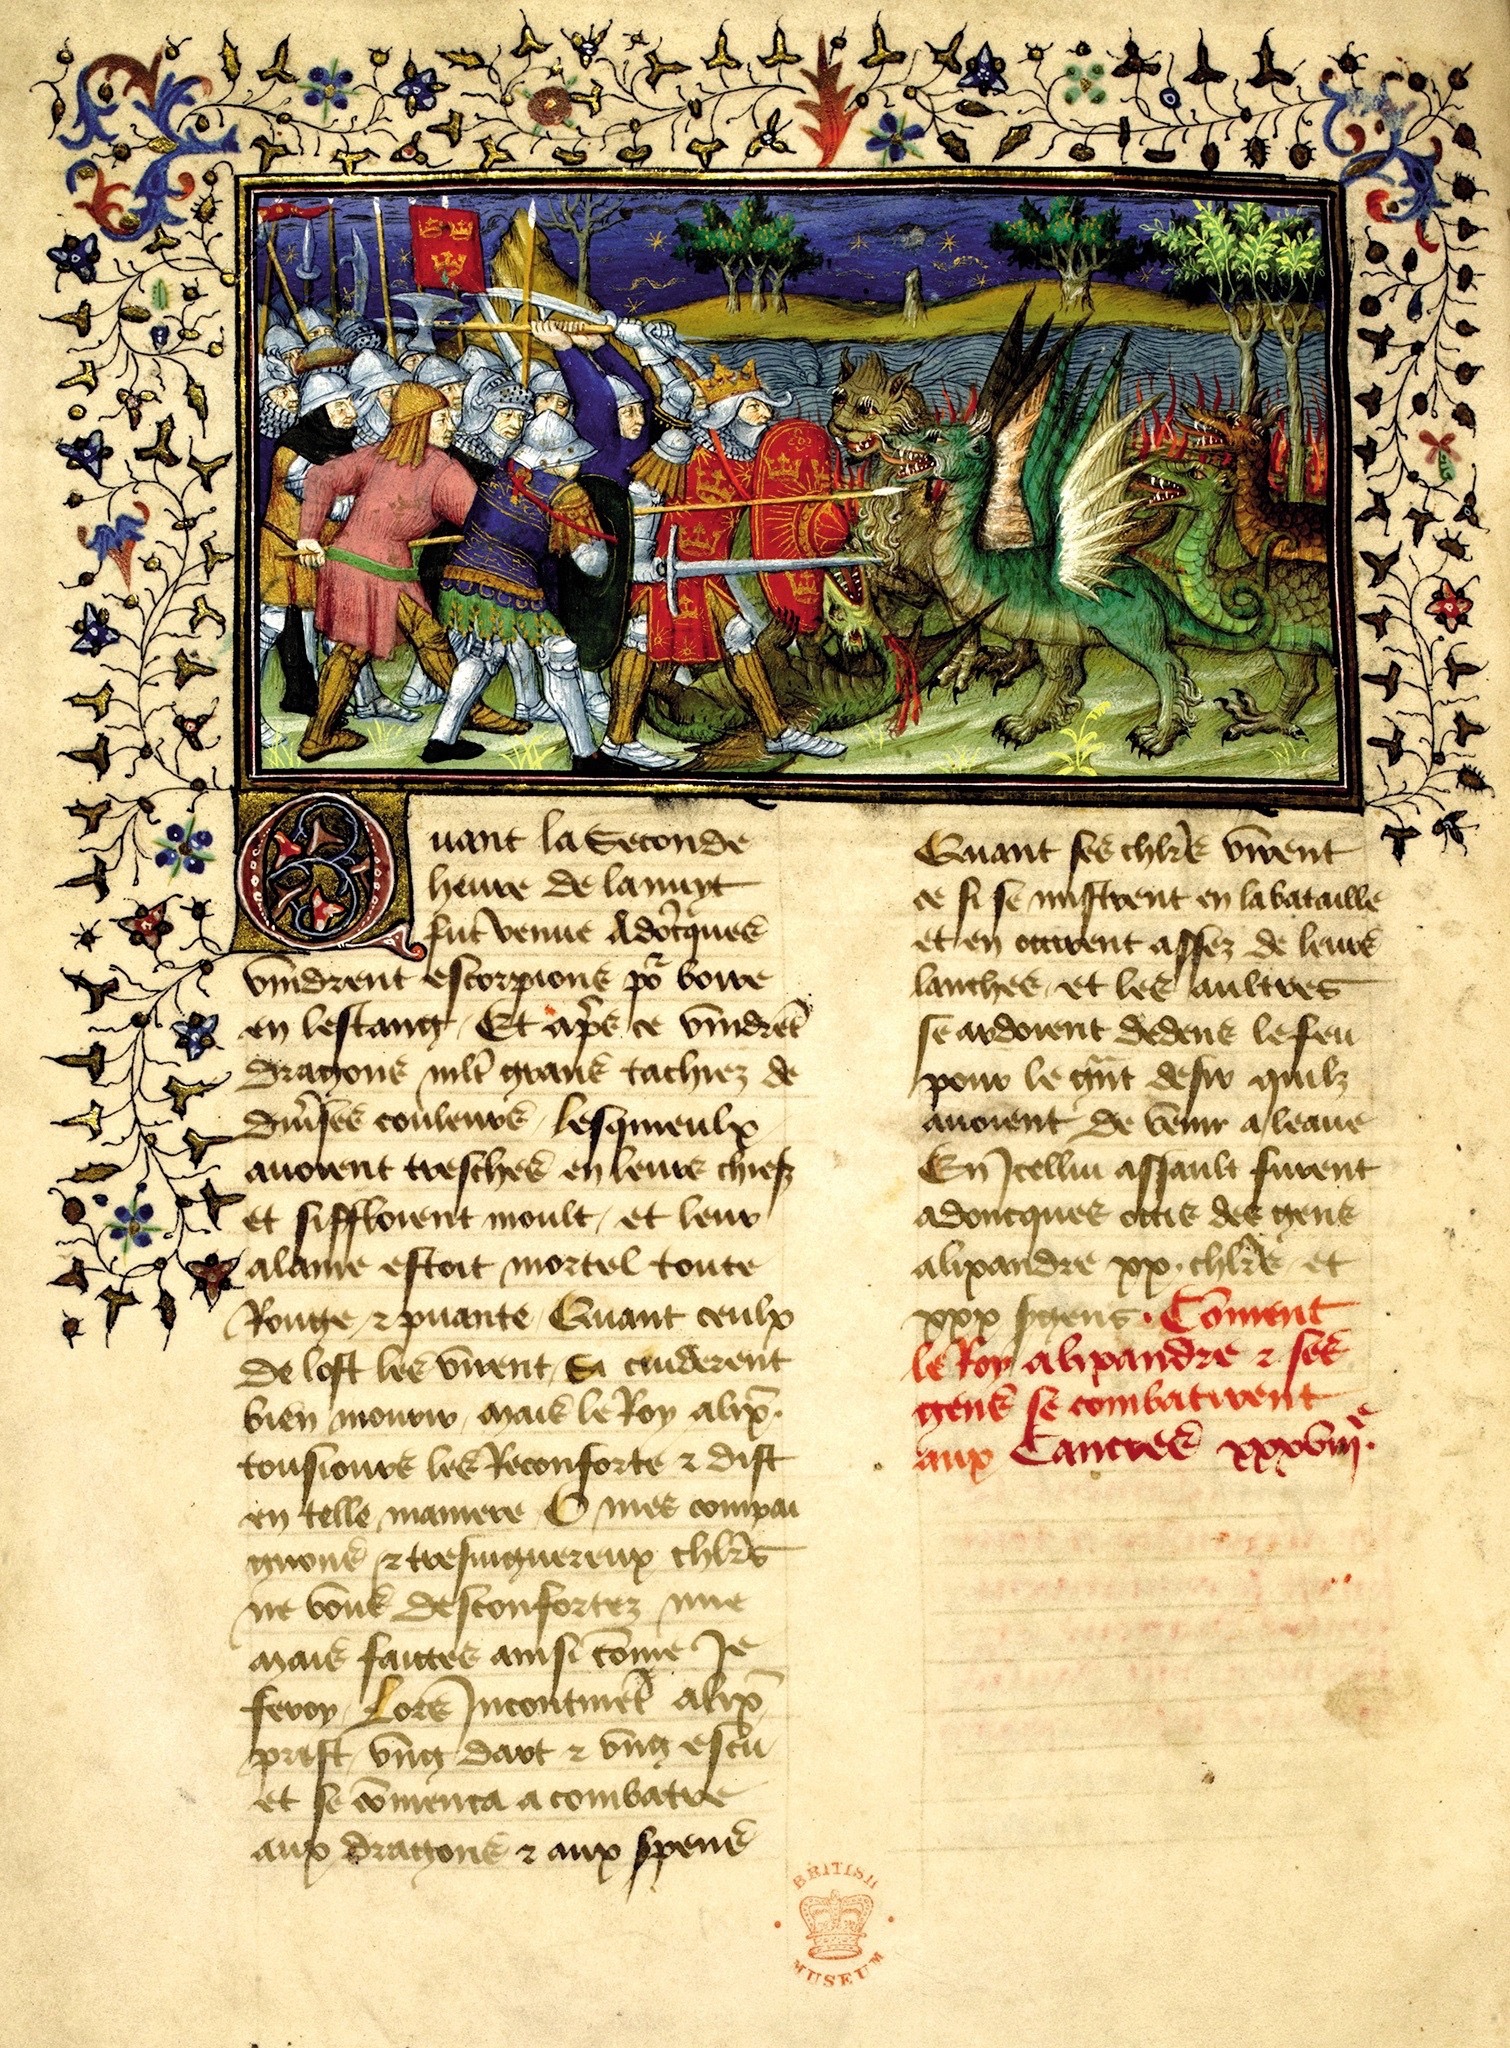 Quant la Seconde
heure de la nuyt
fut venue Adoncques
vindrent escorpions por boire
en lestang / Et apres ce vindrent
dragons mlt grans tachiez de
diverses couleurs / lesquieulx
avoient tresches en leurs chiefz
et siffloient moult / et leur
alaine estoit mortel toute
Rouge / et puante / Quant ceulx
de lost les virent / Si cuiderent
bien mourir / mais le Roy alix̄.
tousiours les Reconforte et dist
en telle maniere / O mes compai
gnons / et tresviguereux chlrs
ne vous desconfortez mie
mais faites ainsi cōme Je
feray / Lors Incontinēt alix̄
prist / vng dart et vng escu
et se cōmenca a combatre
aux dragons et aux serpens
Quant ses chlrs virent
ce si se mistrent en la bataille
et en occirent assez de leurs
lanches / et les aultres
se ardoient dedens le feu
pour le grāt desir quilz
avoient de venir a leaue
En Icellui assault furent
adoncques occis des gens
alixandre xx. chlrs / et
xxx sgens. Cōment
le Roy alixandre et ses
gens se combatirent
aux Cancres xxxviije.
BRITISH
MUSEUM